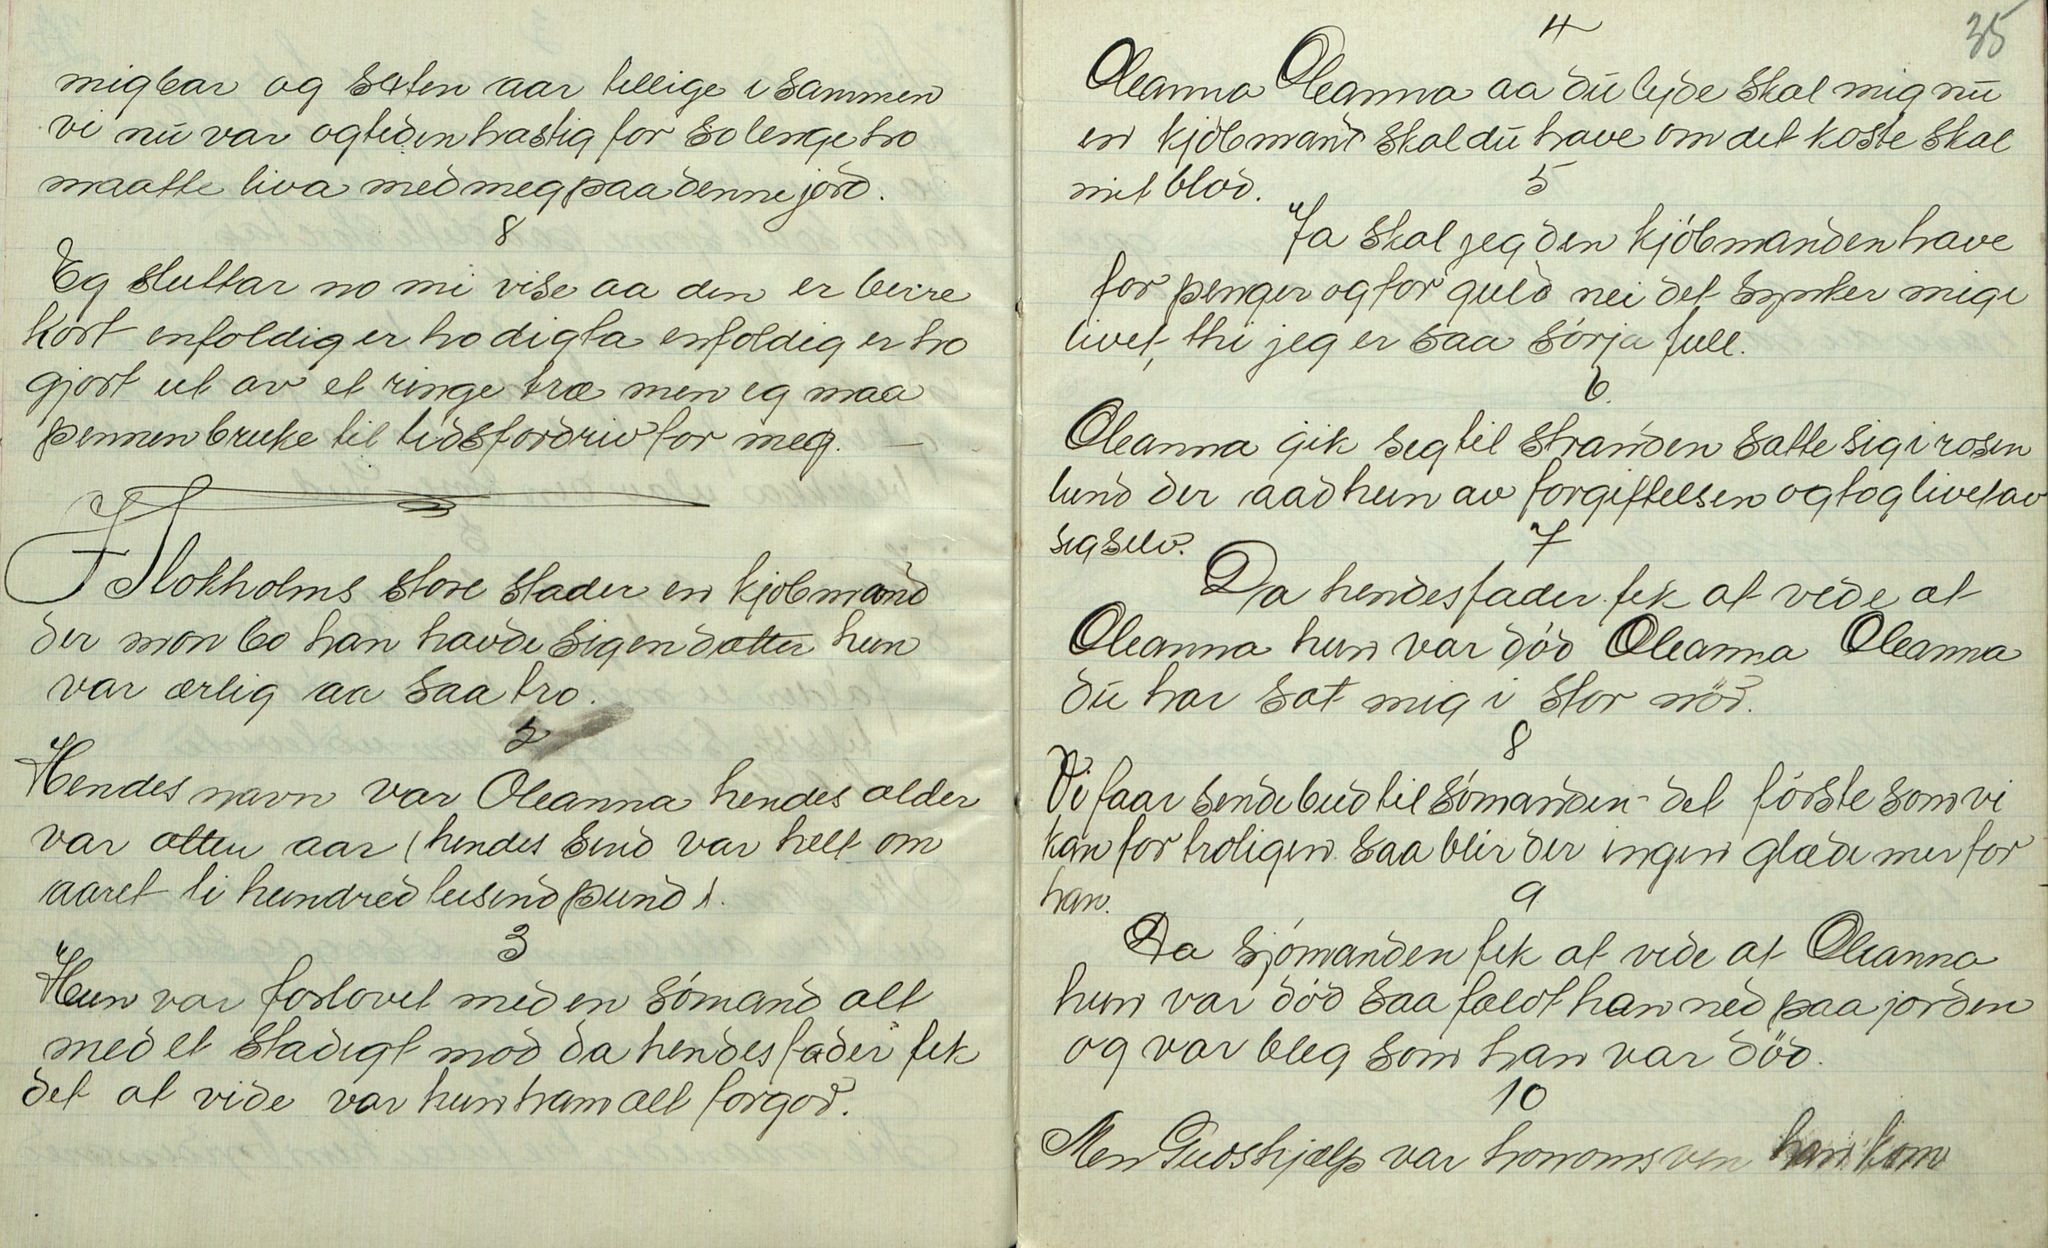 mig bar og seten aar tillige i sammen
vi nu var og tiden hastig for so lenge ho
maatte liva med meg paa denne jord.
8
Eg sluttar no mi vise aa den er beire
kort enfoldig er ho digta enfoldig er ho
gjort ut av et ringe træ men eg maa
pennen bruke til tidsfordriv for meg. —
I Stokholms store stader en kjøbmand
der mon bo han havde sig en datter hun
var ærlig aa saa tro.
2
Hendes navn var Oleanna hendes alder
var atten aar (hendes sind var helt om
aaret ti hundred tusind pund).
3
Hun var forlovet med en sømand alt
med et stadigt mod da hendes fader fik
det at vide var hun ham alt forgod.
35
4
Oleanna Oleanna aa du lyde skal mig nu
en kjøbmand skal du have om det koste skal
mit blod.
5
Ja skal jeg den kjøbmanden have
for penger og for guld nei det synker mig i
livet, thi jeg er saa sørja full.
6
Oleanna gik seg til stranden satte sig i rosen
lund der aad hun av forgiftelsen og tog livet av
seg selv.
7
Da hendes fader fik at vide at
Oleanna hun var død Oleanna Oleanna
du har sat mig i stor nød.
8
Vi faar sende bud til sømanden det første som vi
kan for troligen saa blir der ingen glæde mer for
han.
9
Da sjømanden fik at vide at Oleanna
hun var død saa faldt han ned paa jorden
og var bleg som han var død.
10
Men Guds hjælp var honoms ven han kom